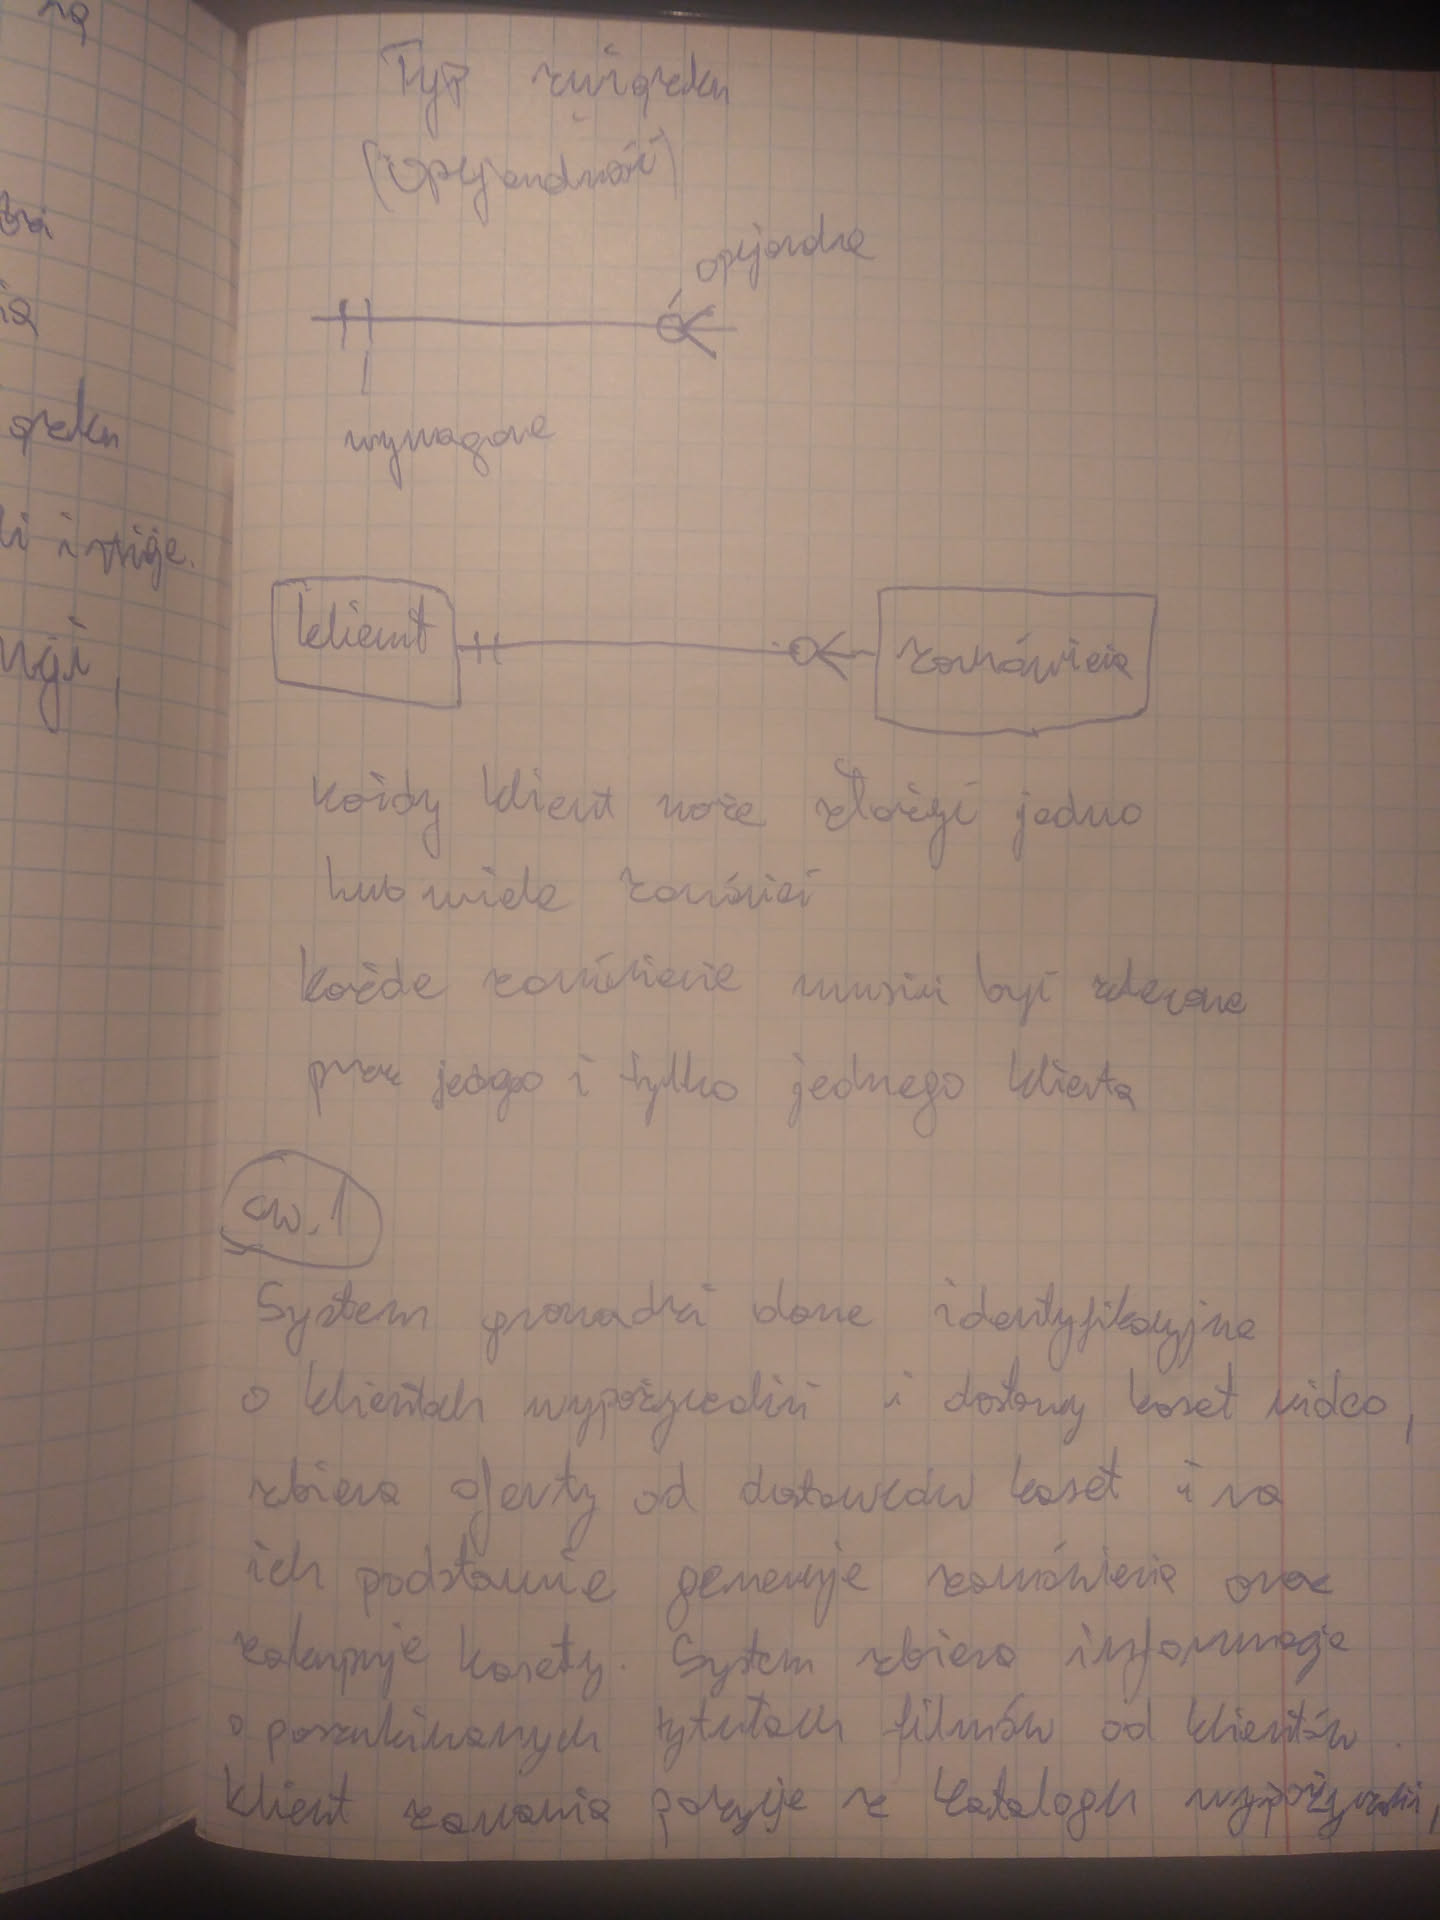 Typ związku
(Opcjonalność)
opcjonalne
wymagane
klient
zamówienia
Każdy klient może złożyć jedno
lub wiele zamówień
Każde zamówienie musi być zlecone
przez jednego i tylko jednego klienta
ćw. 1
System gromadzi dane identyfikacyjne
o klientach wypożyczalni i dostawcy kaset video,
zbiera oferty od dostawców kaset i na
ich podstawie generuje zamówienia oraz
zakupuje kasety. System zbiera informacje
o poszukiwanych tytułach filmów od klientów.
Klient zamawia pozycje z katalogu wypożyczalni,